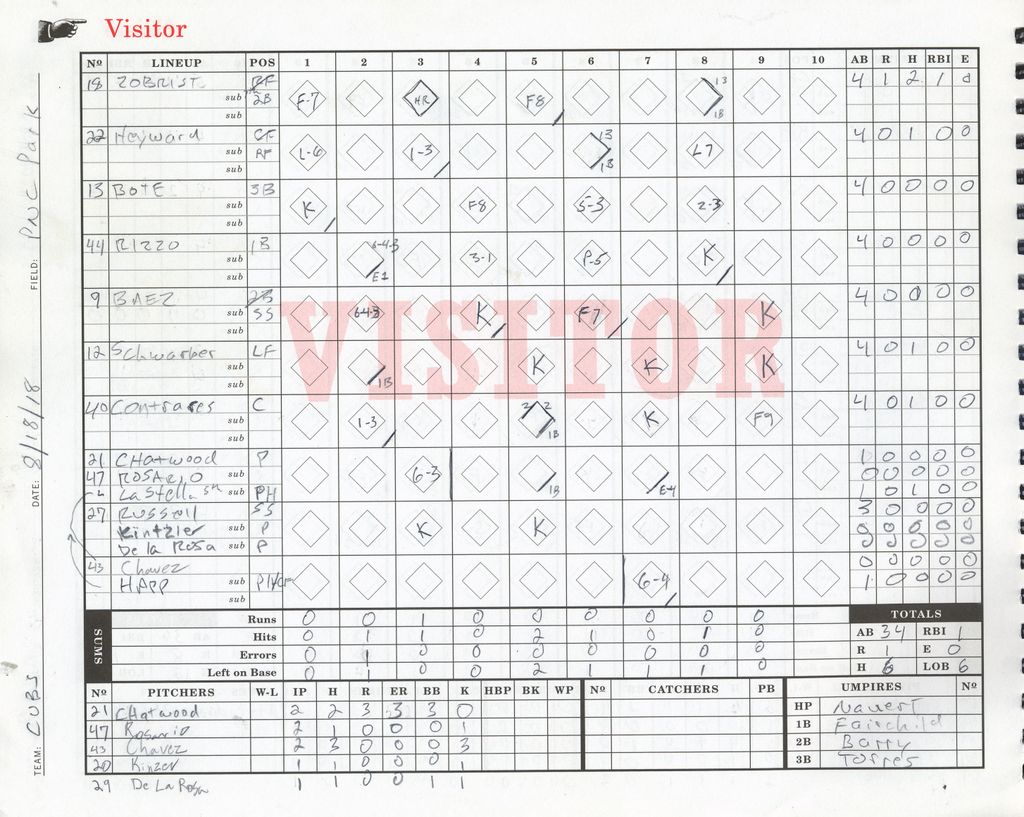 Visitor
Nº LINEUP POS 1 2 3 4 5 6 7 8 9 10 AB R H RBI E
18 ZOBRIST RF 13 4 1 2 1 0
sub 2B F-7 HR F8
sub 1B
22 Heyward CF 13 4 0 1 0 0
sub RF 1-6 1-3 L7
sub 1B
13 BOTE 3B 4 0 0 0 0
sub K F8 5-3 2-3
sub
44 RIZZO 1B 6-4-3 4 0 0 0 0
sub 3-1 P-5 K
sub E1
9 BAEZ 2B 4 0 0 0 0
sub SS 6-4-3 K F-7 K
sub
12 Schwarber LF 4 0 1 0 0
sub K K K
sub 1B
40 Contrares C 2 2 4 0 1 0 0
sub 1-3 K F9
sub 1B
21 CHatwood P 1 0 0 0 0
47 ROSARIO sub 6-3 0 0 0 0 0
La Stella sub PH 1B E-4 1 0 1 0 0
27 Russell SS 3 0 0 0 0
Kintzler sub P K K 0 0 0 0 0
De la Rosa sub P 0 0 0 0 0
43 Chavez 0 0 0 0 0
HAPP sub PH/CF 6-4 1 0 0 0 0
sub
VISITOR
SUMS
Runs 0 0 1 0 0 0 0 0 0
Hits 0 1 1 0 2 1 0 1 0
Errors 0 1 0 0 0 0 0 0 0
Left on Base 0 1 0 0 2 1 1 1 0
TOTALS
AB 34 RBI 1
R 1 E 0
H 6 LOB 6
Nº PITCHERS W-L IP H R ER BB K HBP BK WP Nº CATCHERS PB UMPIRES Nº
21 CHatwood 2 2 3 3 3 0
47 Rosario 2 1 0 0 0 1
43 Chavez 2 3 0 0 0 3
20 Kinzer 1 1 0 0 0 1
29 De La Rosa 1 1 0 0 1 1
HP Nauert
1B Fairchild
2B Barry
3B Torres
TEAM: CUBS DATE: 8/18/18 FIELD: PNC Park